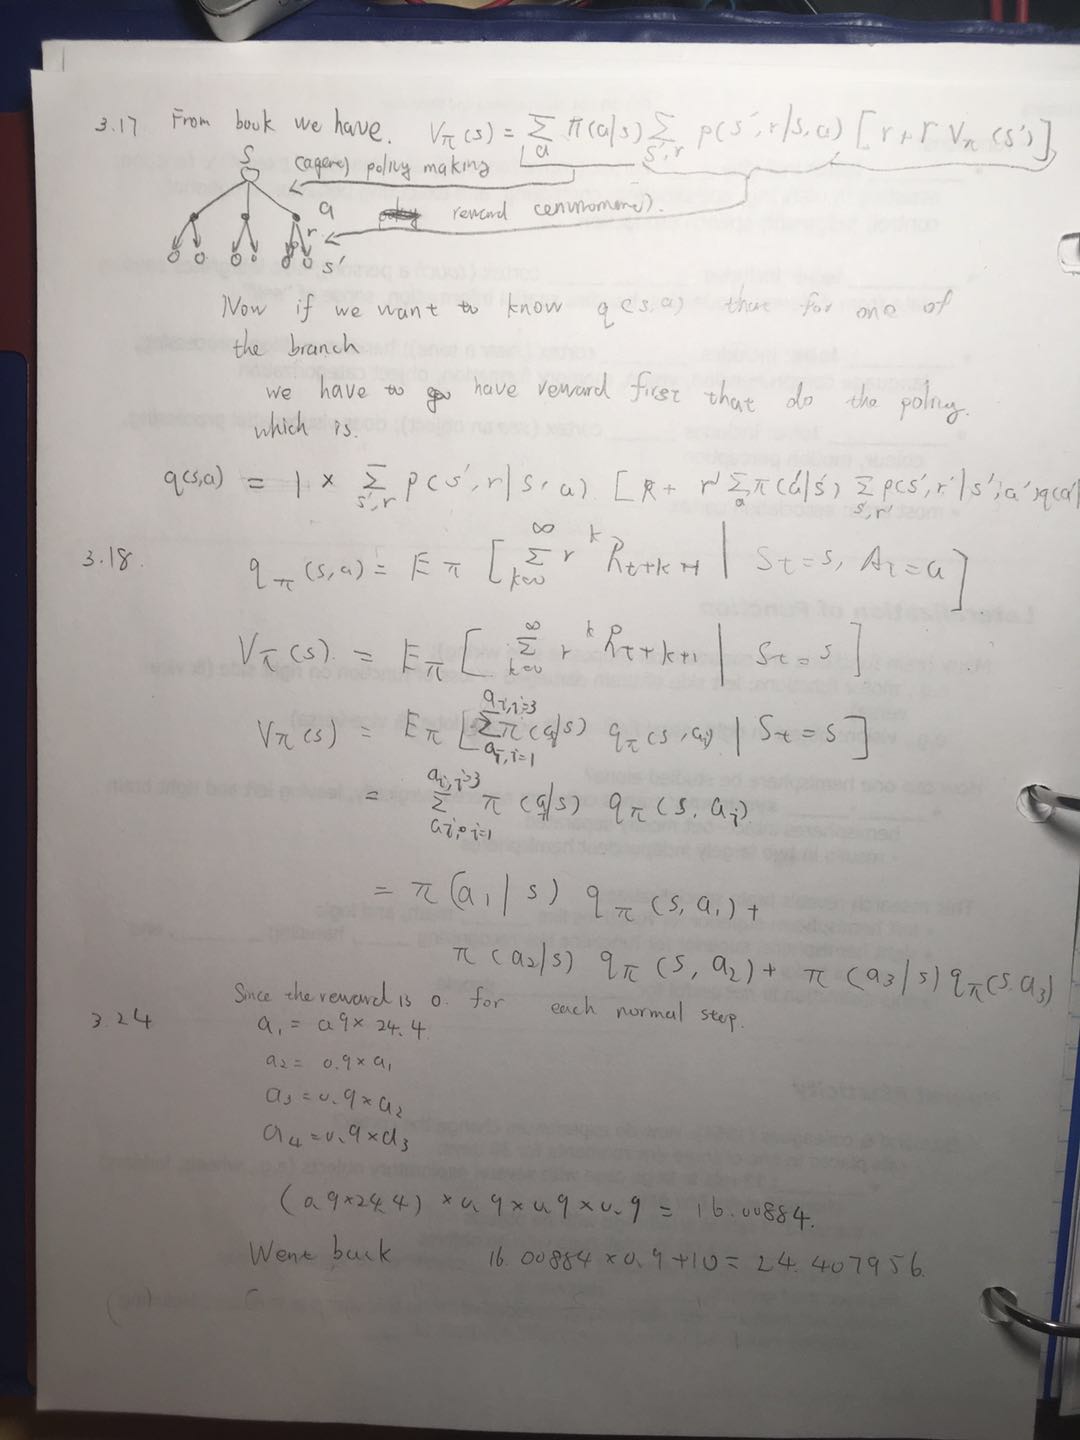 3.17 From book we have. Vπ(s) = Σ_a π(a|s) Σ_{s',r} p(s',r|s,a) [r + r Vπ(s')]
S (agent) policy making
a reward (environment).
r
s'
Now if we want to know q(s,a) that for one of
the branch
we have to go have reward first that do the policy.
which is.
q(s,a) = 1 × Σ_{s',r} p(s',r|s,a) [R + r Σ_a π(a'|s') Σ_{s',r'} p(s',r'|s',a')q(a'
3.18. qπ(s,a) = Eπ [Σ_{k=0}^∞ r^k R_{t+k+1} | St=s, At=a]
Vπ(s) = Eπ [Σ_{k=0}^∞ r^k R_{t+k+1} | St=s]
Vπ(s) = Eπ [Σ_{ai,i=1}^{ai,i=3} π(ai|s) qπ(s,ai) | St=s]
= Σ_{ai,i=1}^{ai,i=3} π(ai|s) qπ(s,ai)
= π(a1|s) qπ(s,a1) +
π(a2|s) qπ(s,a2) + π(a3|s) qπ(s.a3)
Since the reward is 0. for each normal step.
3.24 a1 = 0.9 × 24.4
a2 = 0.9 × a1
a3 = 0.9 × a2
a4 = 0.9 × a3
(0.9×24.4) × 0.9 × 0.9 × 0.9 = 16.00884.
Went back 16.00884 × 0.9 + 10 = 24.407956